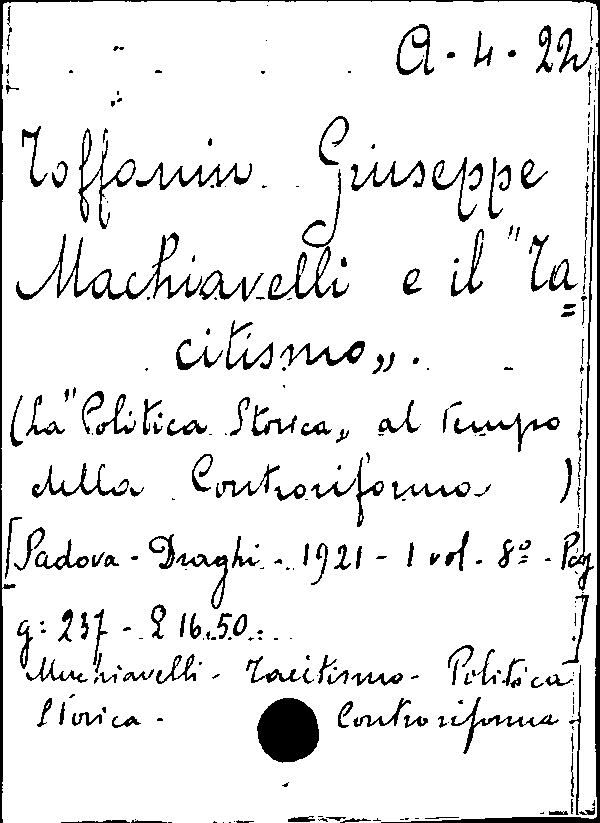 A. 4. 22
Toffanin Giuseppe
Machiavelli e il "Ta=
citismo„.
(La "Politica Storica„ al tempo
della Controriforma )
[Padova - Draghi - 1921 - 1 vol. 8º - Pag
g: 237 - £ 16.50. ]
Machiavelli - Tacitismo - Politica
Storica - Controriforma -